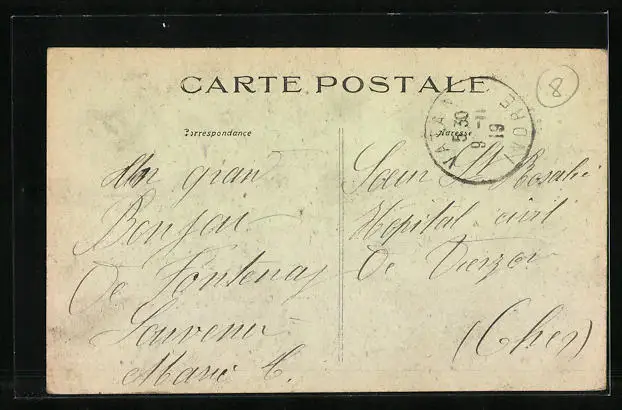 CARTE POSTALE
Correspondance
Adresse
VATAN
5 30
9 - 11
19
INDRE
8
Un gran
Bonjou
De Fontenay
Souvenir
Marie C.
Sœur Ste Rosalie
Hopital civil
De Vierzon
(Cher)